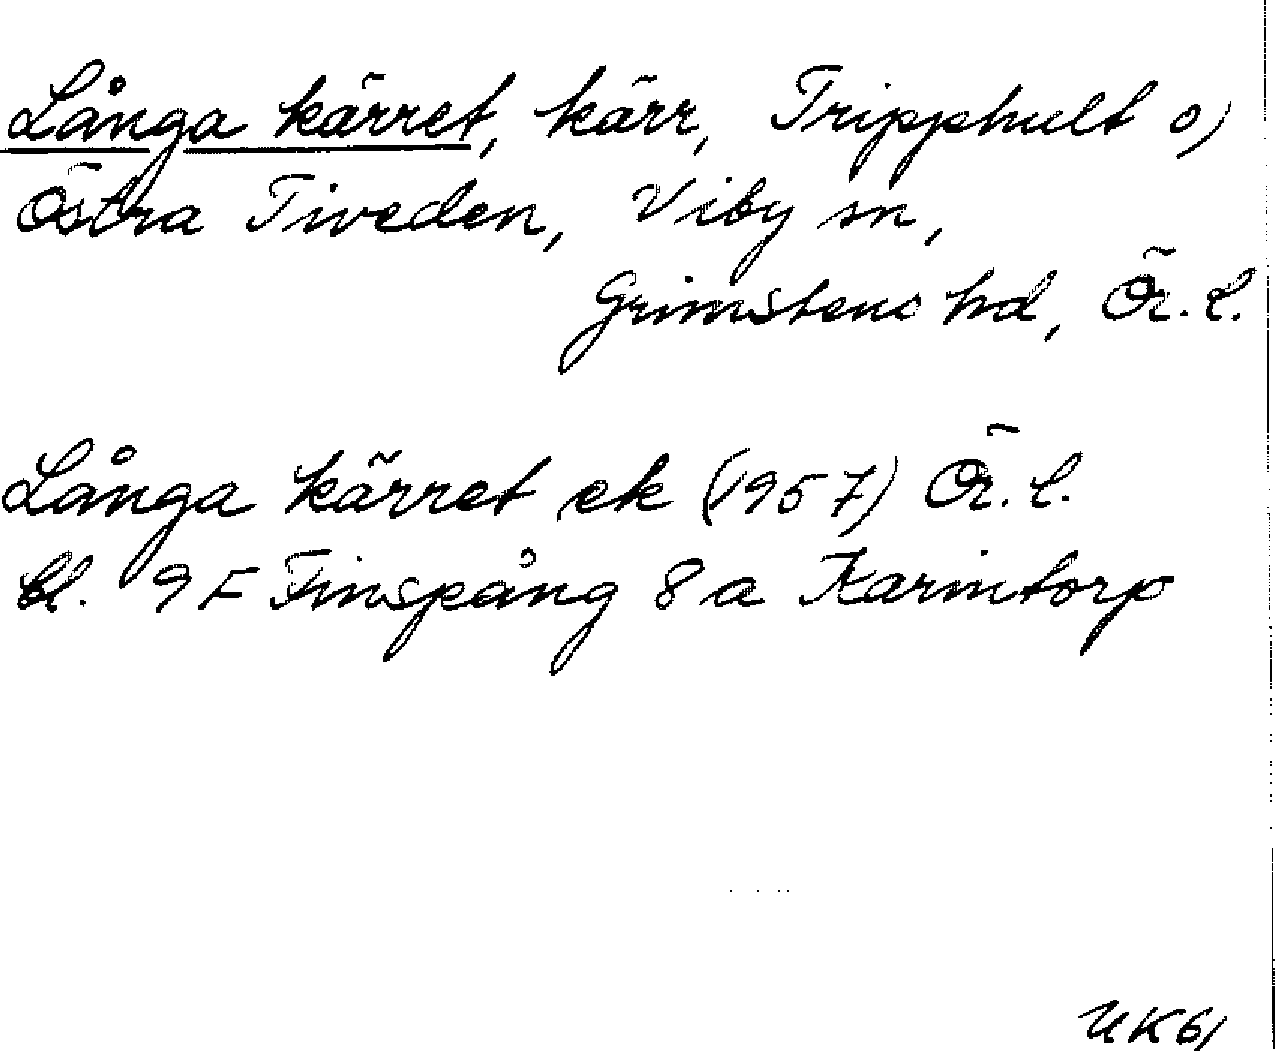 Långa kärret, kärr, Tripphult o)
Östra Tiveden, Viby sn,
Grimstens hd, Ör. l.
Långa kärret ek (1957) Ör. l.
bl. 9 F Finspång 8 a Karintorp
UK61